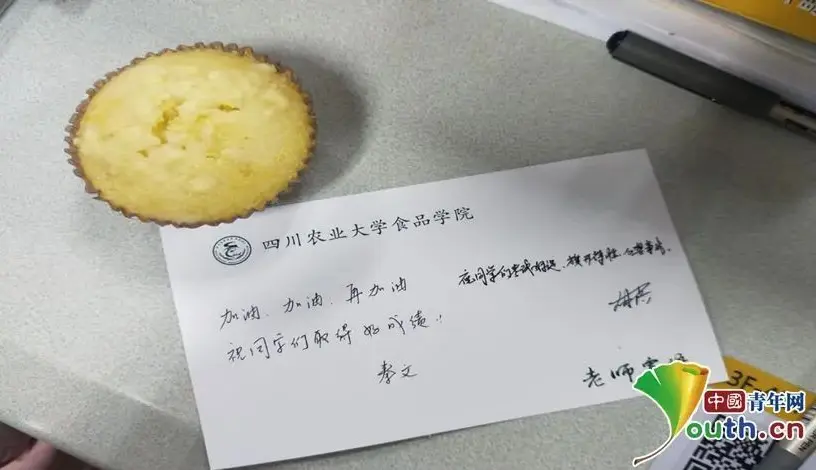 四川农业大学食品学院
加油、加油、再加油
祝同学们取得好成绩！
李文
祝同学们考试好运、旗开得胜
老师
3F
中國青年网
youth.cn